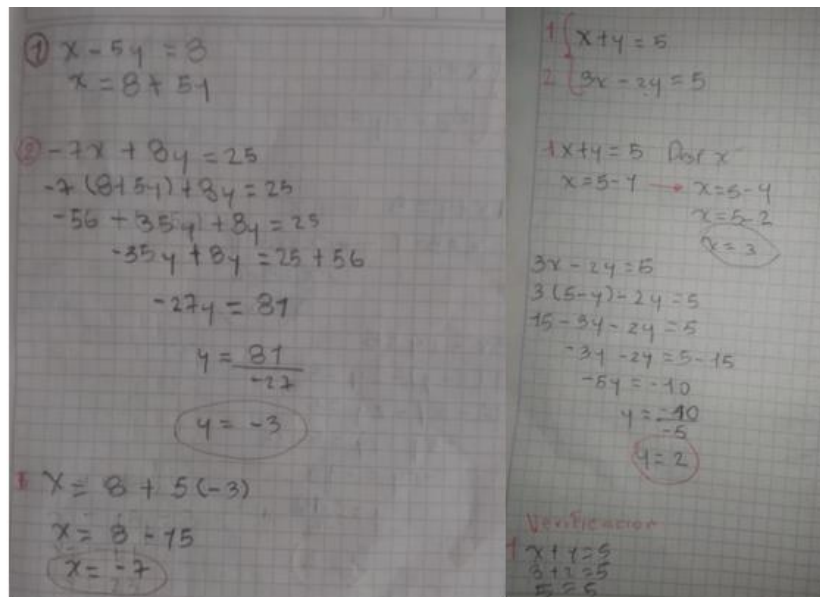 1 x - 5y = 8
x = 8 + 5y
2 -7x + 8y = 25
-7(8+5y) + 8y = 25
-56 + 35y + 8y = 25
-35y + 8y = 25 + 56
-27y = 81
y = 81
-27
y = -3
x = 8 + 5(-3)
x = 8 - 15
x = -7
1 x+y = 5
2 3x - 2y = 5
1 x+y = 5 Por x
x = 5-y → x = 5-y
x = 5-2
x = 3
3x - 2y = 5
3(5-y) - 2y = 5
15 - 3y - 2y = 5
-3y - 2y = 5 - 15
-5y = -10
y = -10
-5
y = 2
Verificación
1 x+y = 5
3+2 = 5
5 = 5